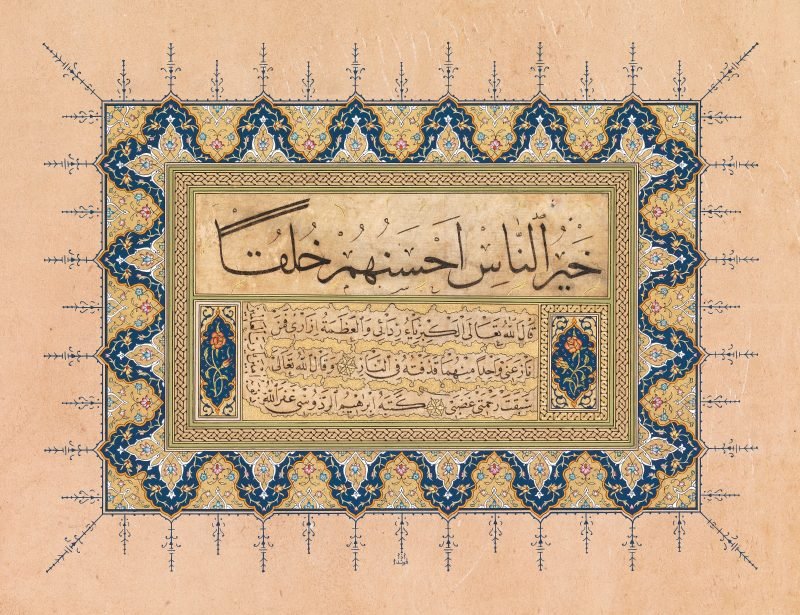 خَيْرُ النَّاسِ اَحْسَنُهُمْ خُلُقًا
قال الله تعالى الكبرياء ردائي والعظمة ازاري فمن
نازعني واحدا منهما قذفته في النار وقال الله تعالى
سبقت رحمتي غضبي كتبه ابرهيم غفر الله